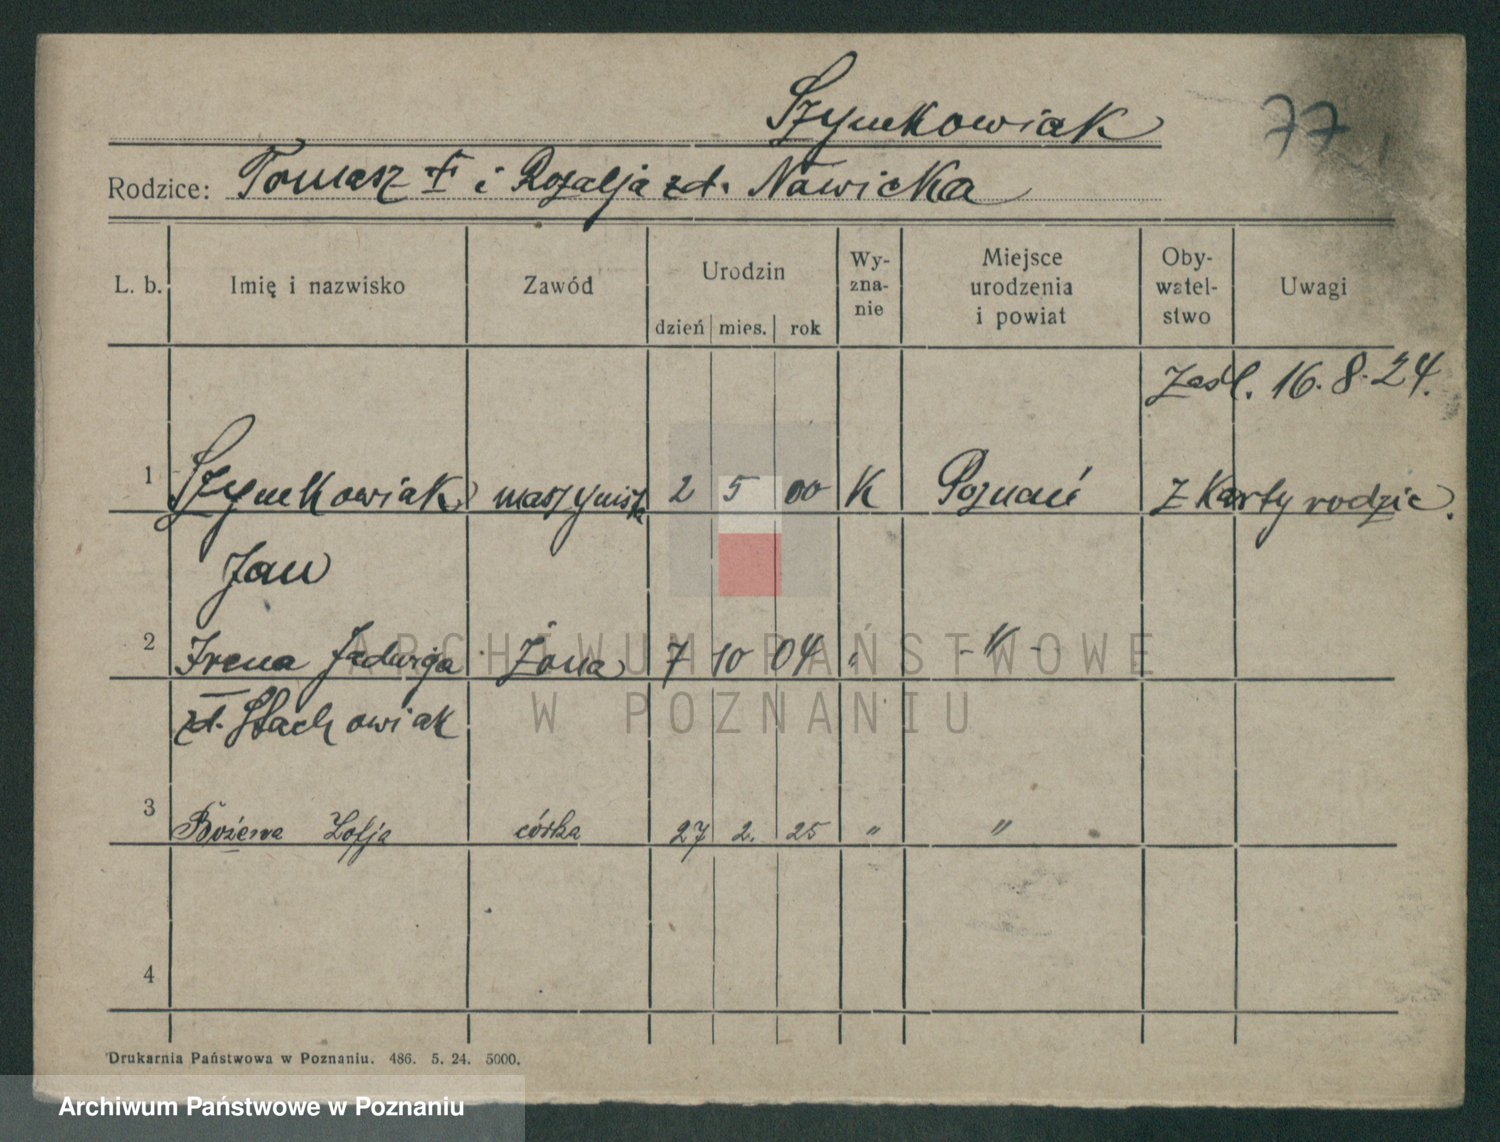 Szymkowiak 77
Rodzice: Tomasz † i Rozalja zd. Nowicka
L. b. Imię i nazwisko Zawód Urodzin dzień mies. rok Wy-zna-nie Miejsce urodzenia i powiat Oby-watel-stwo Uwagi
Zaśl. 16.8.24.
1 Szymkowiak maszynista 2 5 00 K Poznań z karty rodzic.
Jan
2 Irena Jadwiga Żona 7 10 04 " - " -
zd. Stachowiak
3 Bożena Zofja córka 27 2. 25 " "
4
Drukarnia Państwowa w Poznaniu. 486. 5. 24. 5000.
ARCHIWUM PAŃSTWOWE
W POZNANIU
Archiwum Państwowe w Poznaniu